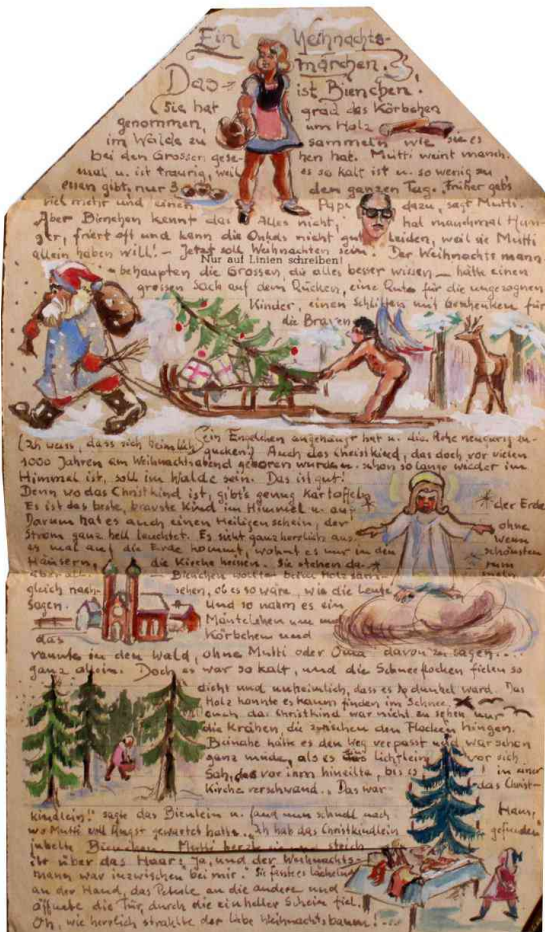 Ein Weihnachts-
märchen.
Das ist Bienchen.
Sie hat grad das Körbchen
genommen, um Holz
im Walde zu sammeln wie sie es
bei den Grossen gese- hen hat. Mutti weint manch-
mal u. ist traurig, weil es so kalt ist u. so wenig zu
essen gibt, nur 3 dem ganzen Tag. Früher gab's
viel mehr und einen Papi dazu, sagt Mutti.
Aber Bienchen kennt das Alles nicht, hat manchmal Hun-
ger, friert oft und kann die Onkels nicht gut leiden, weil sie Mutti
allein haben will. – Jetzt soll Weihnachten sein. Der Weihnachtsmann
Nur auf Linien schreiben!
– behaupten die Grossen, die alles besser wissen – hätte einen
grossen Sack auf dem Rücken, eine Rute für die ungezognen
Kinder, einen Schlitten mit Geschenken für
die Braven
(Ich weiss, dass sich heimlich ein Engelchen angehängt hat u. die Rehe neugierig zu-
gucken) Auch das Christkind, das doch vor vielen
1000 Jahren am Weihnachtsabend geboren wurde u. schon so lange wieder im
Himmel ist, soll im Walde sein. Das ist gut!
Denn wo das Christkind ist, gibt's genug Kartoffeln
Es ist das beste, bravste Kind im Himmel u. auf der Erde
Darum hat es auch einen Heiligenschein, der ohne
Strom ganz hell leuchtet. Es sieht ganz herrlich aus wenn
es mal auf die Erde kommt, wohnt es nur in den schönsten
Häusern, die Kirche heissen. Sie stehen da zum
Bienchen wollte beim Holz sam-
gleich nach- sehen, ob es so wäre, wie die Leute
sagen. Und so nahm es ein
Mäntelchen um und
das Körbchen und
rannte in den Wald, ohne Mutti oder Oma davon zu sagen....
ganz allein. Doch es war so kalt, und die Schneeflocken fielen so
dicht und unheimlich, dass es so dunkel ward. Das
Holz konnte es kaum finden im Schnee,
auch das Christkind war nicht zu sehen nur
die Krähen, die zwischen den Flocken hingen.
Beinahe hätte es den Weg verpasst und war schon
ganz müde, als es das Lichtlein vor sich
sah, das vor ihm hineilte, bis es in einer
Kirche verschwand. „Das war das Christ-
kindlein!" sagte das Bienlein u. fand nun schnell nach Haus,
wo Mutti voll Angst gewartet hatte. „Ich hab das Christkindlein gefunden
jubelte Bienchen. Mutti herzte es und streich
ihr über das Haar: „Ja, und der Weihnachts-
mann war inzwischen bei mir." Sie fasste es lächelnd
an der Hand, das Peterle an die andere und
öffnete die Tür, durch die ein heller Schein fiel.
Oh, wie herrlich strahlte der liebe Weihnachtsbaum!